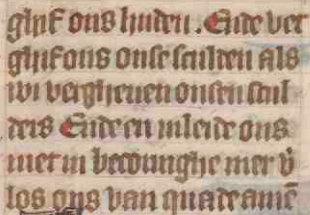 ghif ons huden. Ende ver
ghif ons onse sculden als
wi vergheuen onsen scul
ders Ende en inleide ons
niet in becoringhe mer v̄
los ons van quade amē